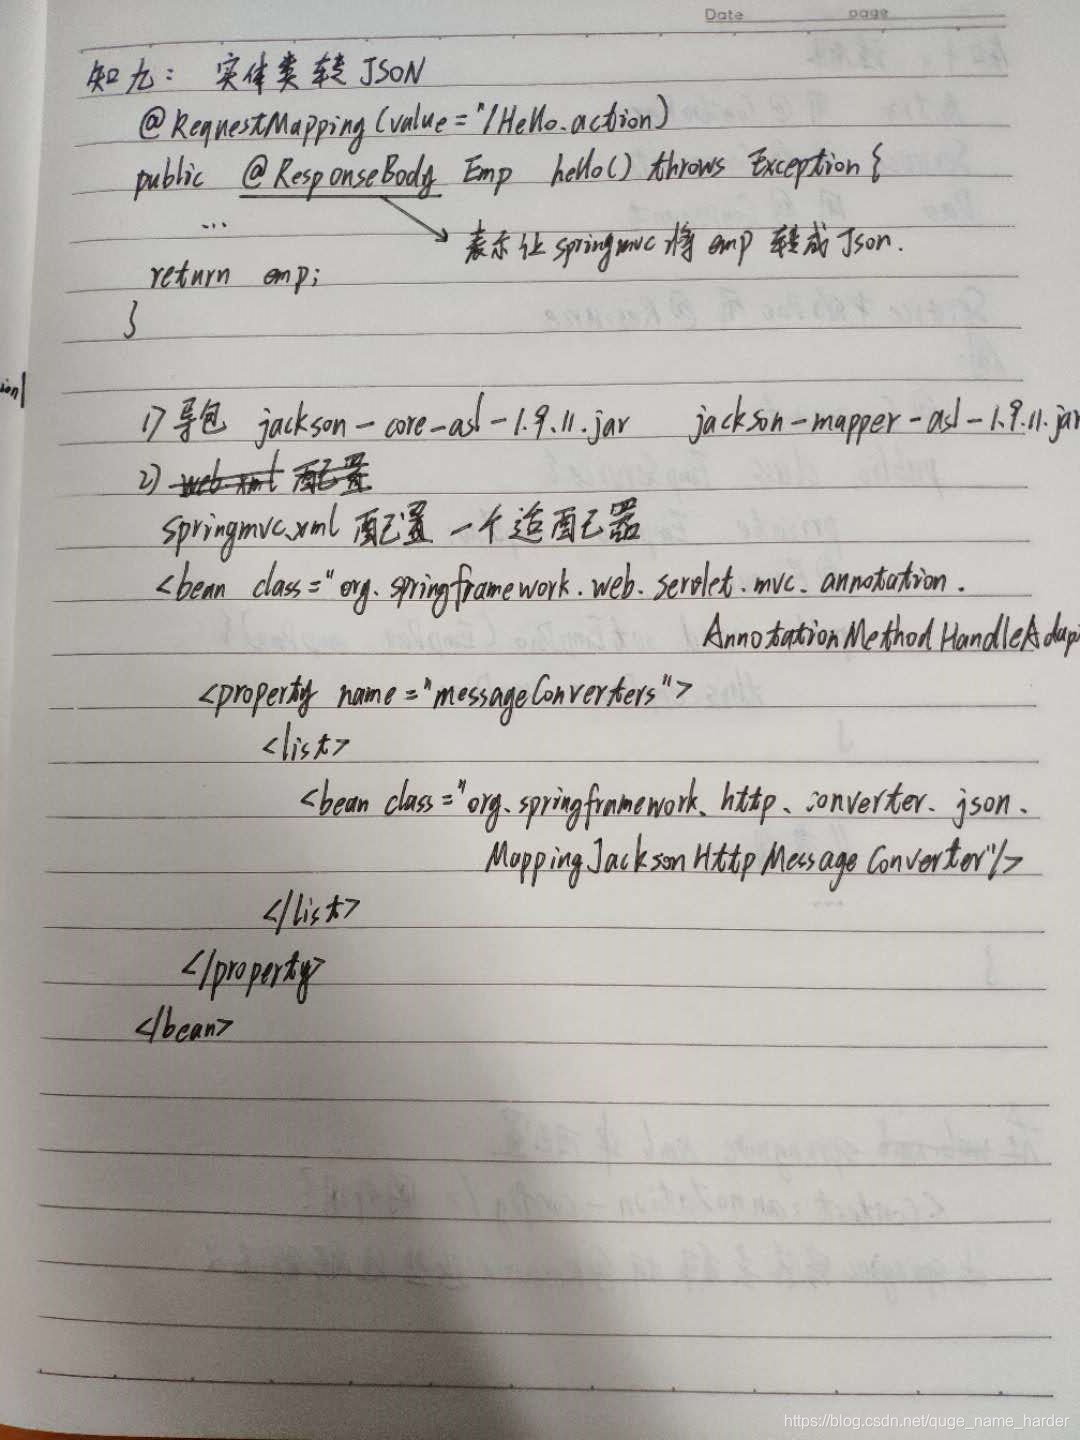 Date page
知九： 实体类转JSON
@RequestMapping(value="/Hello.action)
public @ResponseBody Emp hello() throws Exception{
...
表示让springmvc将emp转成Json.
return emp;
}
ion
1) 导包 jackson-core-asl-1.9.11.jar jackson-mapper-asl-1.9.11.jar
2) web.xml 配置
springmvc.xml 配置 一个适配器
<bean class="org.springframework.web.servlet.mvc.annotation.
AnnotationMethodHandleAdap
<property name="messageConverters">
<list>
<bean class="org.springframework.http.converter.json.
MappingJacksonHttpMessageConverter"/>
</list>
</property>
</bean>
https://blog.csdn.net/quge_name_harder